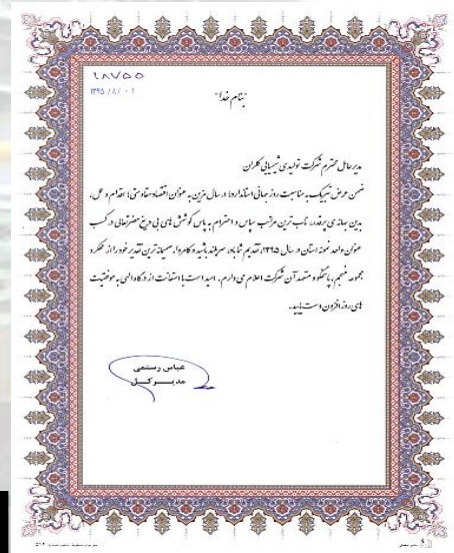 ۱۸۷۵۵
۱۳۹۵/۸/۰۱
بنام خدا
مدیرعامل محترم شرکت تولیدی شیمیایی کلران
ضمن عرض تبریک به مناسبت روز جهانی استاندارد؛ در سال مزین به عنوان اقتصاد مقاومتی؛ اقدام و عمل،
بدین بهانه ی پرقدر، ناب ترین مراتب سپاس و احترام به پاس کوشش های بی دریغ حضرتعالی در کسب
عنوان واحد نمونه استان در سال ۱۳۹۵، تقدیم شما باد، سربلند باشید و کامروا. صمیمانه ترین تقدیر خود را از عملکرد
مجموعه منسجم، پاسخگو و متعهد آن شرکت اعلام می دارم. امید است با استعانت از درگاه الهی به موفقیت
های روز افزون دست یابید.
عباس رستمی
مدیــرکــل